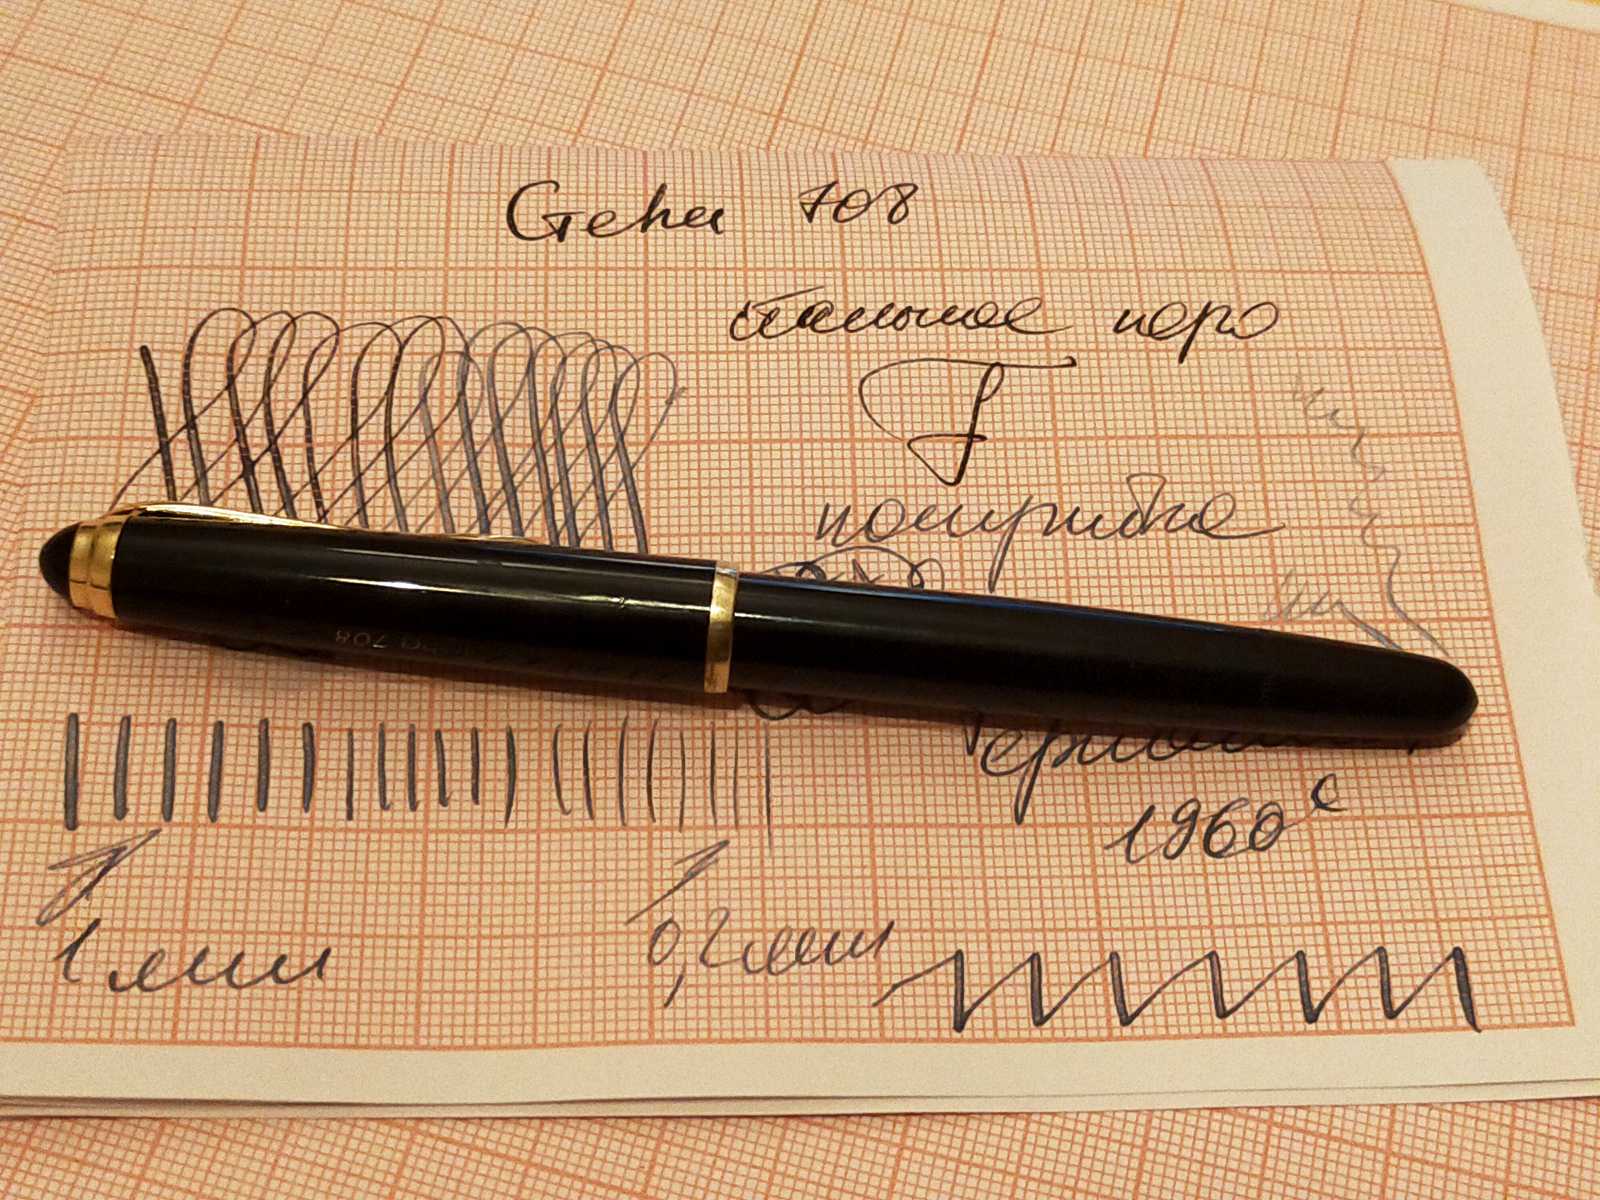 Geha 708
стальное перо
F
полугибкое
708
Германия
1960е
1 мм
0,2 мм